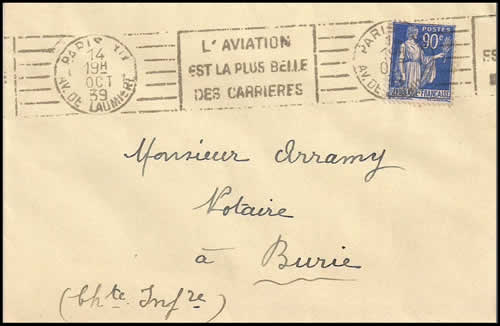 PARIS
14
19H
OCT
39
AV. DE LAUMIERE
L'AVIATION
EST LA PLUS BELLE
DES CARRIERES
PARIS
AV. DE
90c
POSTES
FRANÇAISE
ES
Monsieur Arramy
Notaire
à
Burie
(Chte. Infre)